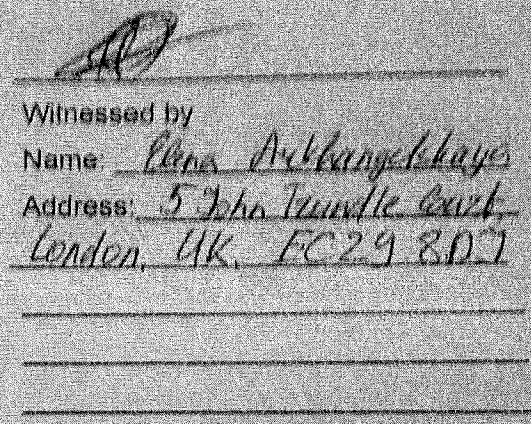 Witnessed by
Name: Elena Arkhangelskaya
Address: 5 John Trundle Court,
London, UK, EC2Y 8DJ